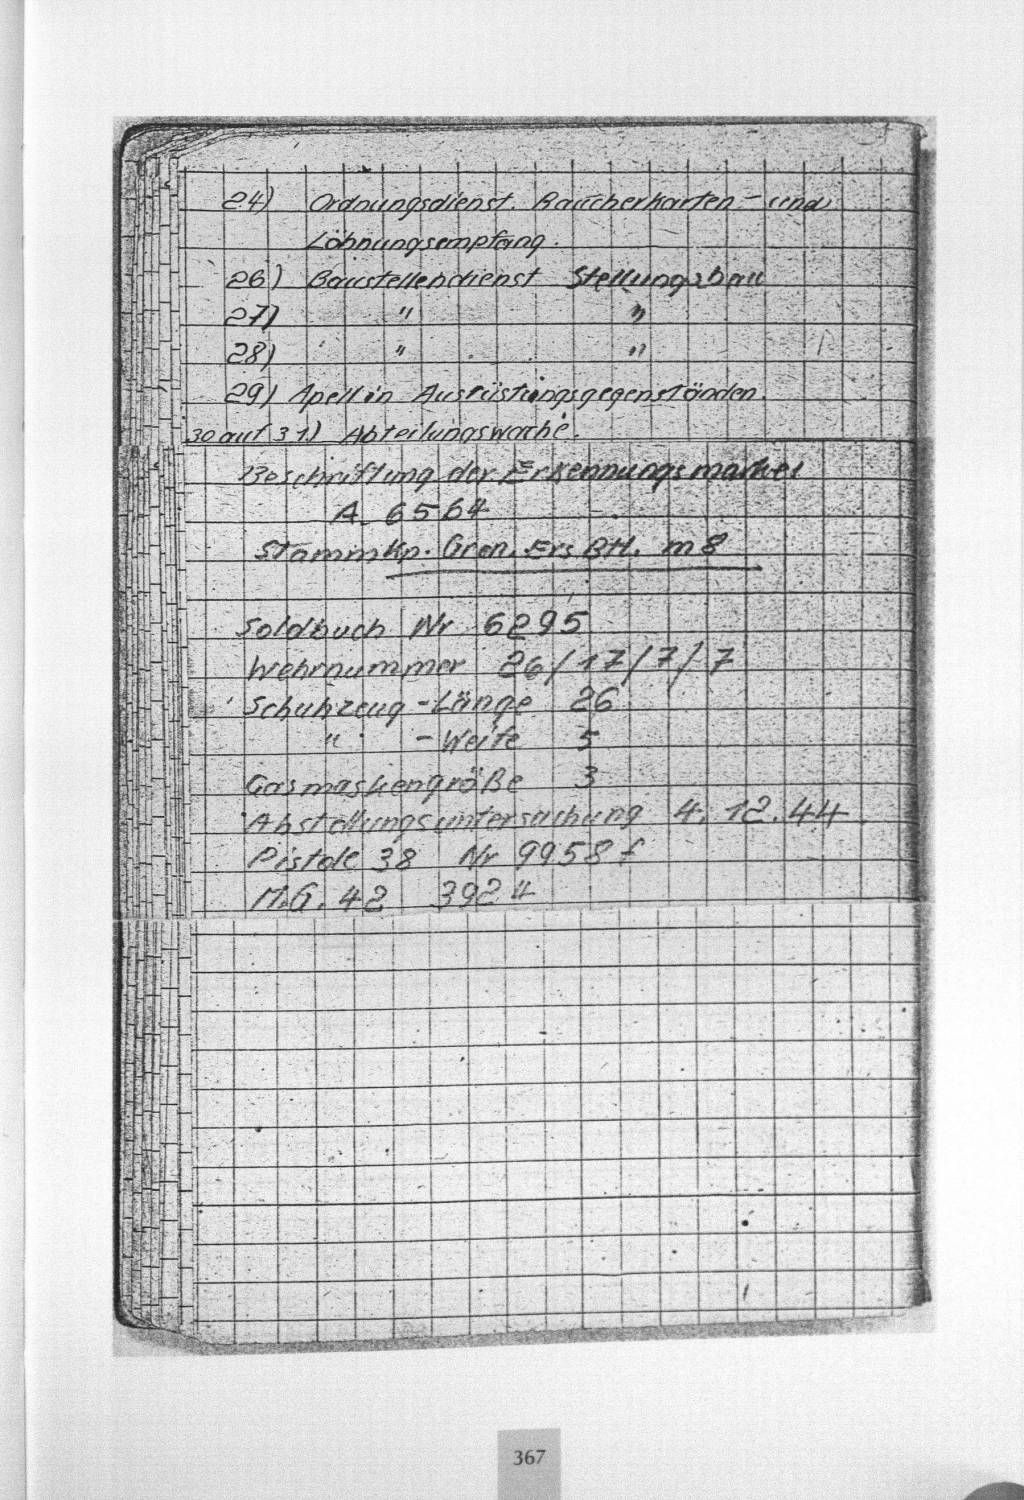 24) Ordnungsdienst. Raucherkarten- und
Löhnungsempfang.
26) Baustellendienst Stellungsbau
27) " "
28) " "
29) Apell in Ausrüstungsgegenständen.
30 auf 31.) Abteilungswache.
Beschriftung der Erkennungsmarke:
A. 6564
Stammkp. Gren. Ers. Btl. m 8
Soldbuch Nr 6295
Wehrnummer 26/17/7/7
Schuhzeug-Länge 26
" -Weite 5
Gasmaskengröße 3
Abstellungsuntersuchung 4.12.44
Pistole 38 Nr 9958 f
M.G. 42 392
367